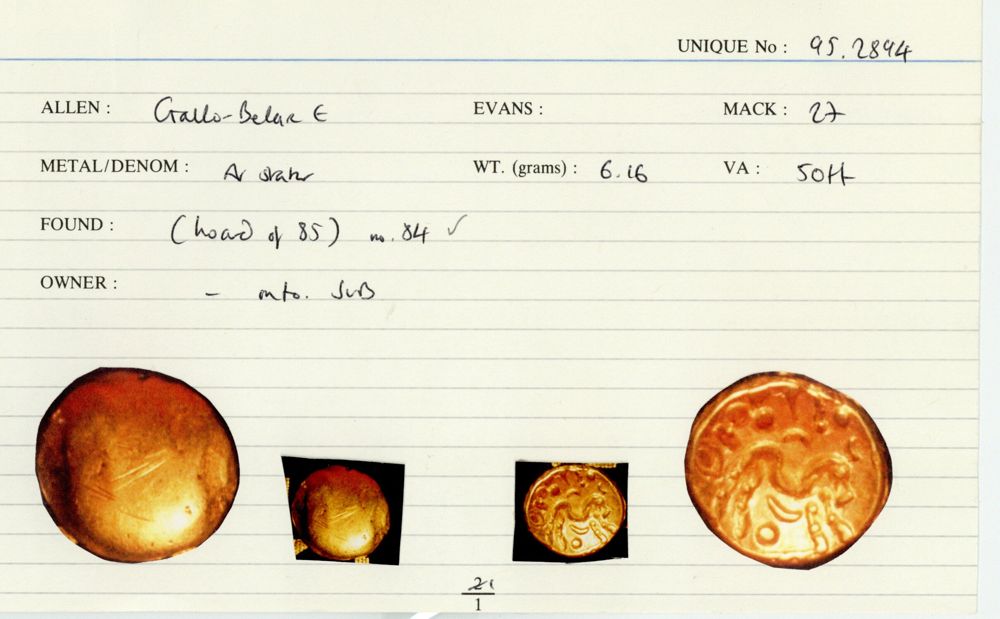 UNIQUE No : 95.2894
ALLEN : Gallo-Belgic E EVANS : MACK : 27
METAL/DENOM : AV stater WT. (grams) : 6.16 VA :
FOUND : (hoard of 85) no. 84 ✓
OWNER : -
21
1